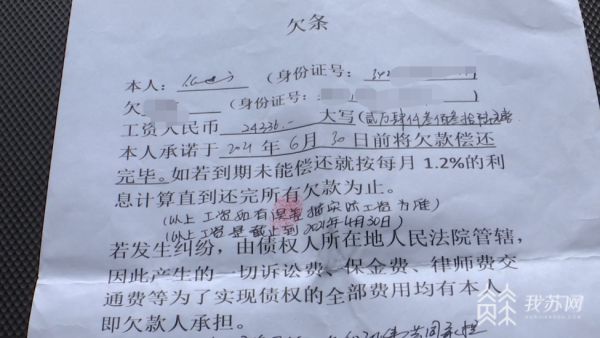 欠条
本人： （身份证号：342
欠 （身份证号：
工资人民币 24336.- 大写（贰万肆仟叁佰叁拾陆
本人承诺于 2021 年 6 月 30 日前将欠款偿还
完毕。如若到期未能偿还就按每月 1.2%的利
息计算直到还完所有欠款为止。
（以上工资如有误差按实际工资为准）
（以上工资是截止到2021年4月30日）
若发生纠纷，由债权人所在地人民法院管辖，
因此产生的一切诉讼费、保金费、律师费交
通费等为了实现债权的全部费用均有本人
即欠款人承担。
我苏网